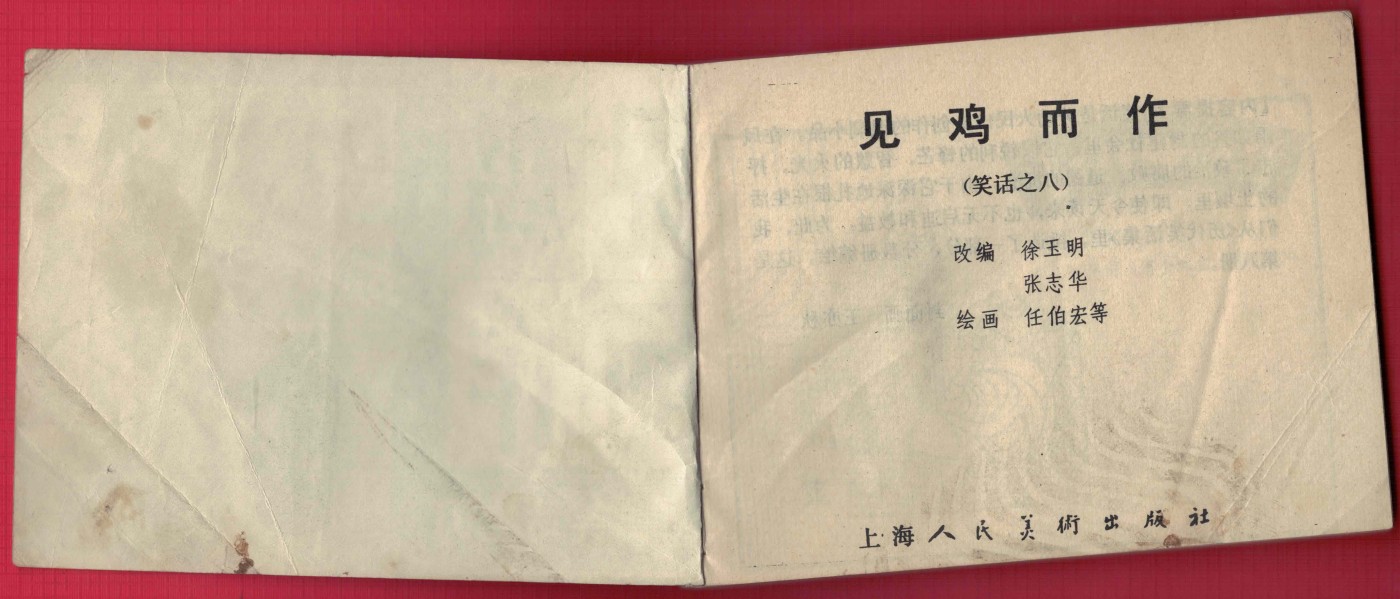 见鸡而作
(笑话之八)
改编 徐玉明
张志华
绘画 任伯宏等
上海人民美術出版社